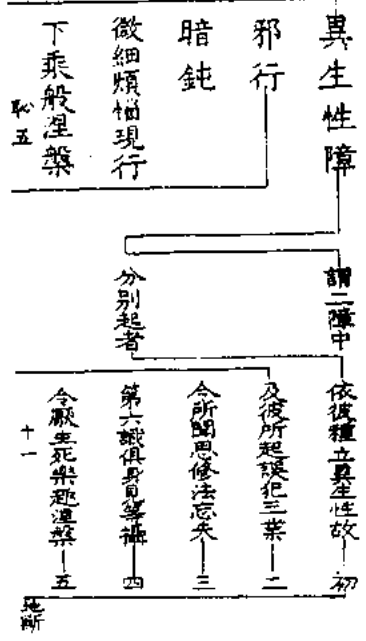 異生性障
邪行
暗鈍
微細煩惱現行
下乘般涅槃
恥五
謂二障中
分別起者
依彼種立異生性故 初
及彼所起誤犯三業 二
令所聞思修法忘失 三
第六識俱身見等攝 四
令厭生死樂趣涅槃 五
十一
地斷